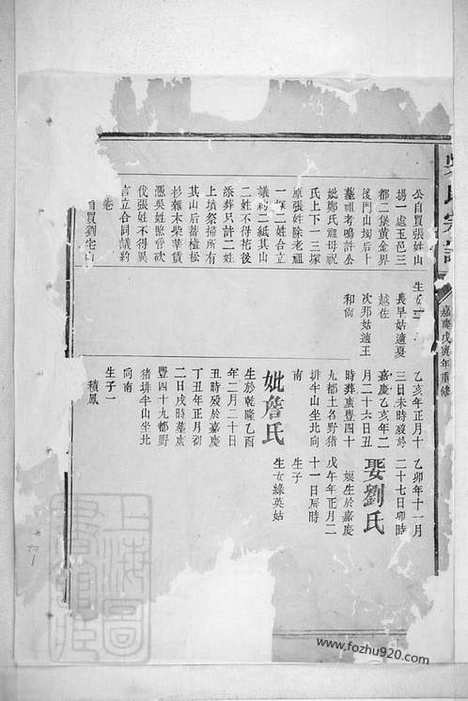 吳氏宗譜
嘉慶戊寅年重修
公自買張姓山
場一處玉邑三
都二堡黃金界
後門山塝后十
墓祖考鳴許公
妣鄭氏祖母祝
氏上下一三塚
原張姓除老祖
一塚二姓合立
議約二紙其山
二姓不得花後
添葬只許二姓
上墳祭掃所有
其山后蓄植松
杉雜木柴筆賣
憑吳姓照管砍
伐張姓不得異
言立合同議約
卷
自買劉宅山
生女二
長早姑適夏
越佐
次邦姑適王
和尚
乙亥年正月十
三日未時歿於
嘉慶乙亥年二
月二十六日丑
時葬處豐四十
九都土名野豬
排牛山坐北向
南
妣詹氏
生於乾隆乙酉
年二月二十日
丑時歿於嘉慶
丁丑年正月初
二日戌時墓處
豐四十九都野
豬排牛山坐北
向南
生子一
積鳳
乙卯年十一月
二十七日卯時
娶劉氏
娘生於嘉慶
戊午年正月二
十一日辰時
生子
生女緣英姑
上海圖
www.fozhu920.com